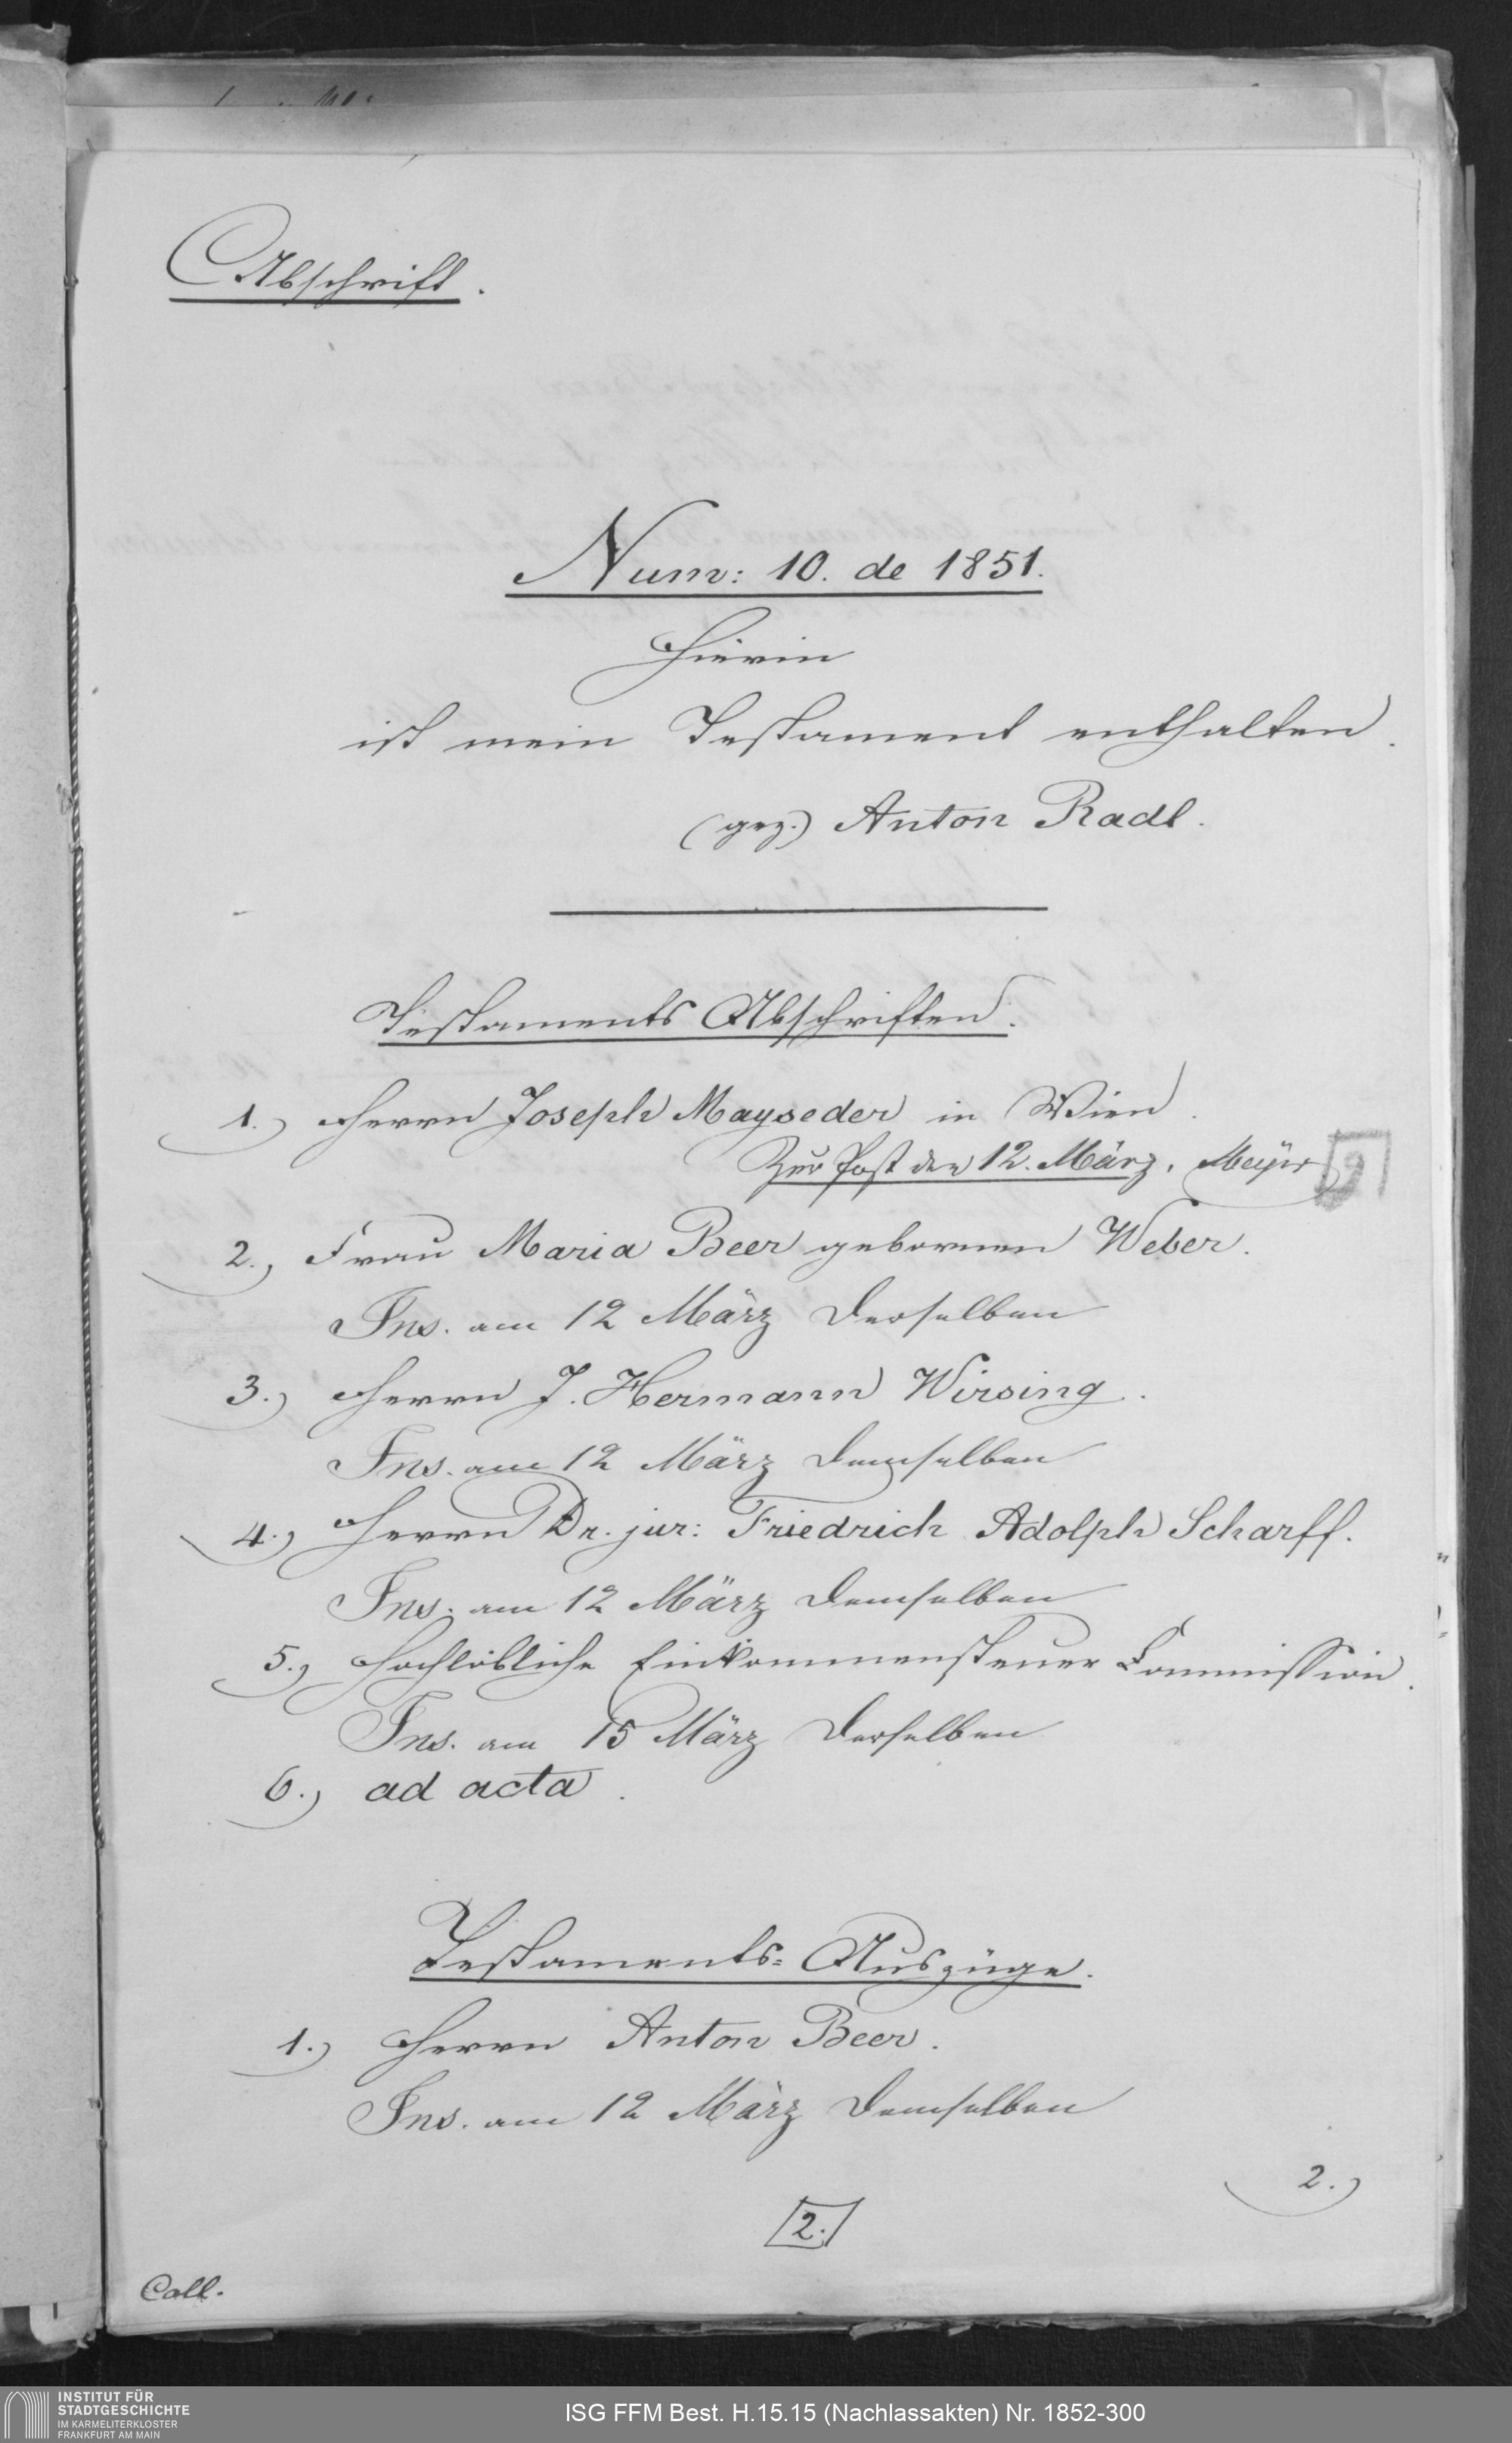 Abschrift.
Num: 10. de 1851.
Hierin
ist mein Testament enthalten.
(gez.) Anton Radl.
Testaments Abschriften.
1.) Herrn Joseph Mayseder in Wien.
Zur Post den 12. März.
9
2.) Frau Maria Beer gebornen Weber.
Ins. am 12 März derselben
3.) Herrn J. Hermann Wirsing.
Ins. am 12 März demselben
4.) Herrn Dr. jur: Friedrich Adolph Scharff.
Ins. am 12 März demselben
5.) Hochlöbliche Einkommensteuer Commission.
Ins. am 15 März derselben
6.) ad acta.
Testaments=Auszüge.
1.) Herrn Anton Beer.
Ins. am 12 März demselben
2.)
2.
Coll.
INSTITUT FÜR
STADTGESCHICHTE
IM KARMELITERKLOSTER
FRANKFURT AM MAIN
ISG FFM Best. H.15.15 (Nachlassakten) Nr. 1852-300